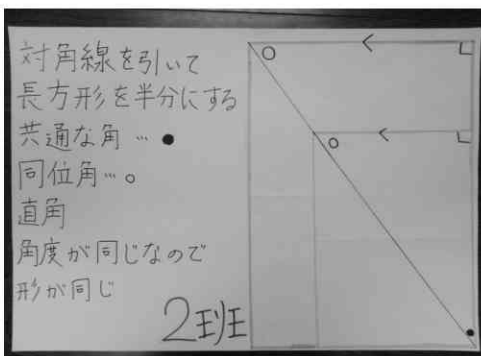 対角線を引いて
長方形を半分にする
共通な角…●
同位角…○
直角
角度が同じなので
形が同じ
2班